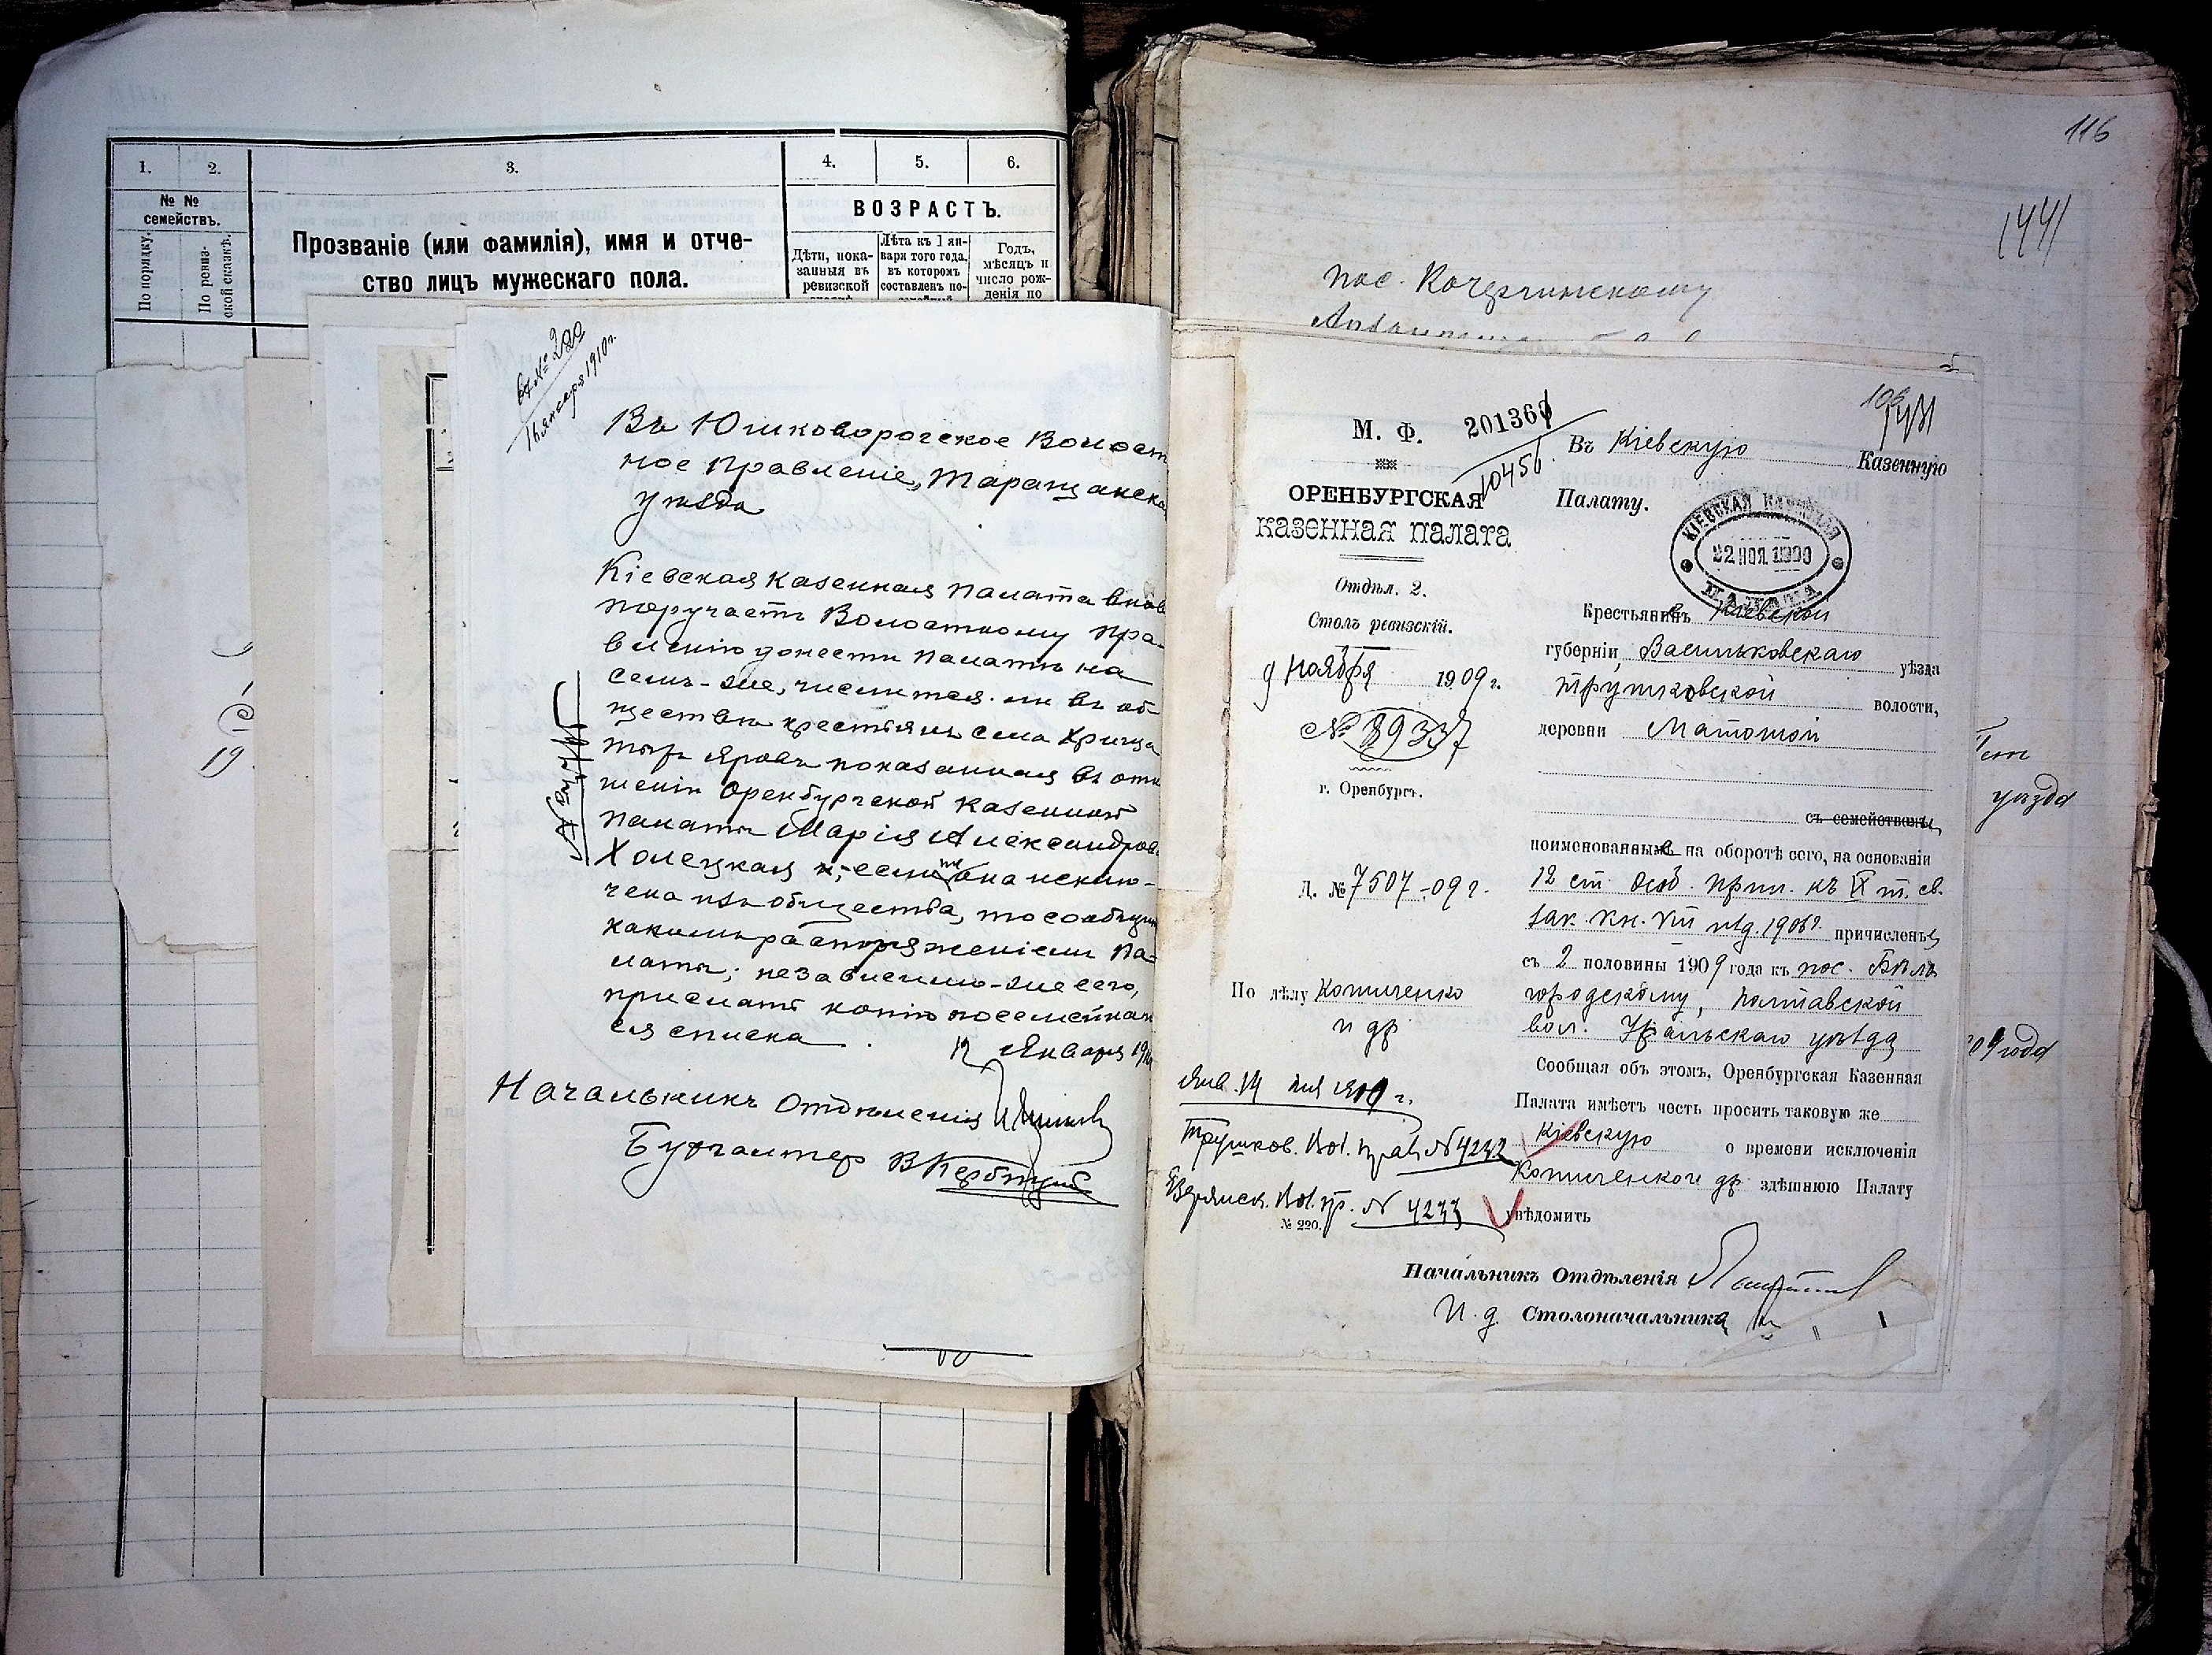 1.
2.
3.
4.
5.
6.
№ №
семействъ.
По порядку.
По ревиз-
ской сказкѣ.
Прозваніе (или фамилія), имя и отче-
ство лицъ мужескаго пола.
ВОЗРАСТЪ.
Дѣти, пока-
занныя въ
ревизской
Лѣта къ 1 ян-
варя того года,
въ которомъ
составленъ по-
Годъ,
мѣсяцъ и
число рож-
денія по
19
16 января 1910 г.
Въ Юшковорогское Волост
ное Правленіе, Таращанска
уѣзда
Кіевская Казенная Палата внов
поручаетъ Волостному Пра-
вленію донести Палатѣ на
семъ-же, числится ли въ об
ществѣ крестьянъ села Хрища
той Яровъ показанная въ отн
шеніи Оренбургской Казенной
Палаты Марія Александров
Холецкая и, если она исклю-
чена изъ общества, то сообщит
какимъ распоряженіемъ Па-
латы; независимо-же сего,
прислать копію посемейна
го списка.
12 Января 19
Начальникъ Отдѣленія
Бухгалтер
116
1441
пос. Кочергинскому
уѣзда
09 года
М. Ф.
20136
10456
ОРЕНБУРГСКАЯ
КАЗЕННАЯ ПАЛАТА
Отдѣл. 2.
Столъ ревизскій.
9 Ноября 1909 г.
№ 8937
г. Оренбургъ.
Д. № 7507-09 г.
По дѣлу Котиченко
и др
Янв. 14 дня 1910 г.
Трушков. Вол. прав. № 4232
Вол. пр. № 4233
№ 220.
Въ Кіевскую Казенную
Палату.
КІЕВСКАЯ КАЗЕННАЯ
22 НОЯ. 1909
ПАЛАТА
Крестьянинъ Кіевской
губерніи, Васильковскаго уѣзда
Трушковской волости,
деревни Матюшой
съ семействомъ,
поименованные на оборотѣ сего, на основаніи
12 ст. Особ. прил. къ IX т. св.
зак. кн. VIII изд. 1906 г. причислены
съ 2 половины 1909 года къ пос. Бѣло
городскому, Полтавской
вол. Уральскаго уѣзда
Сообщая объ этомъ, Оренбургская Казенная
Палата имѣетъ честь просить таковую же
Кіевскую о времени исключенія
Котиченко и др здѣшнюю Палату
увѣдомить
Начальникъ Отдѣленія
И. д. Столоначальника